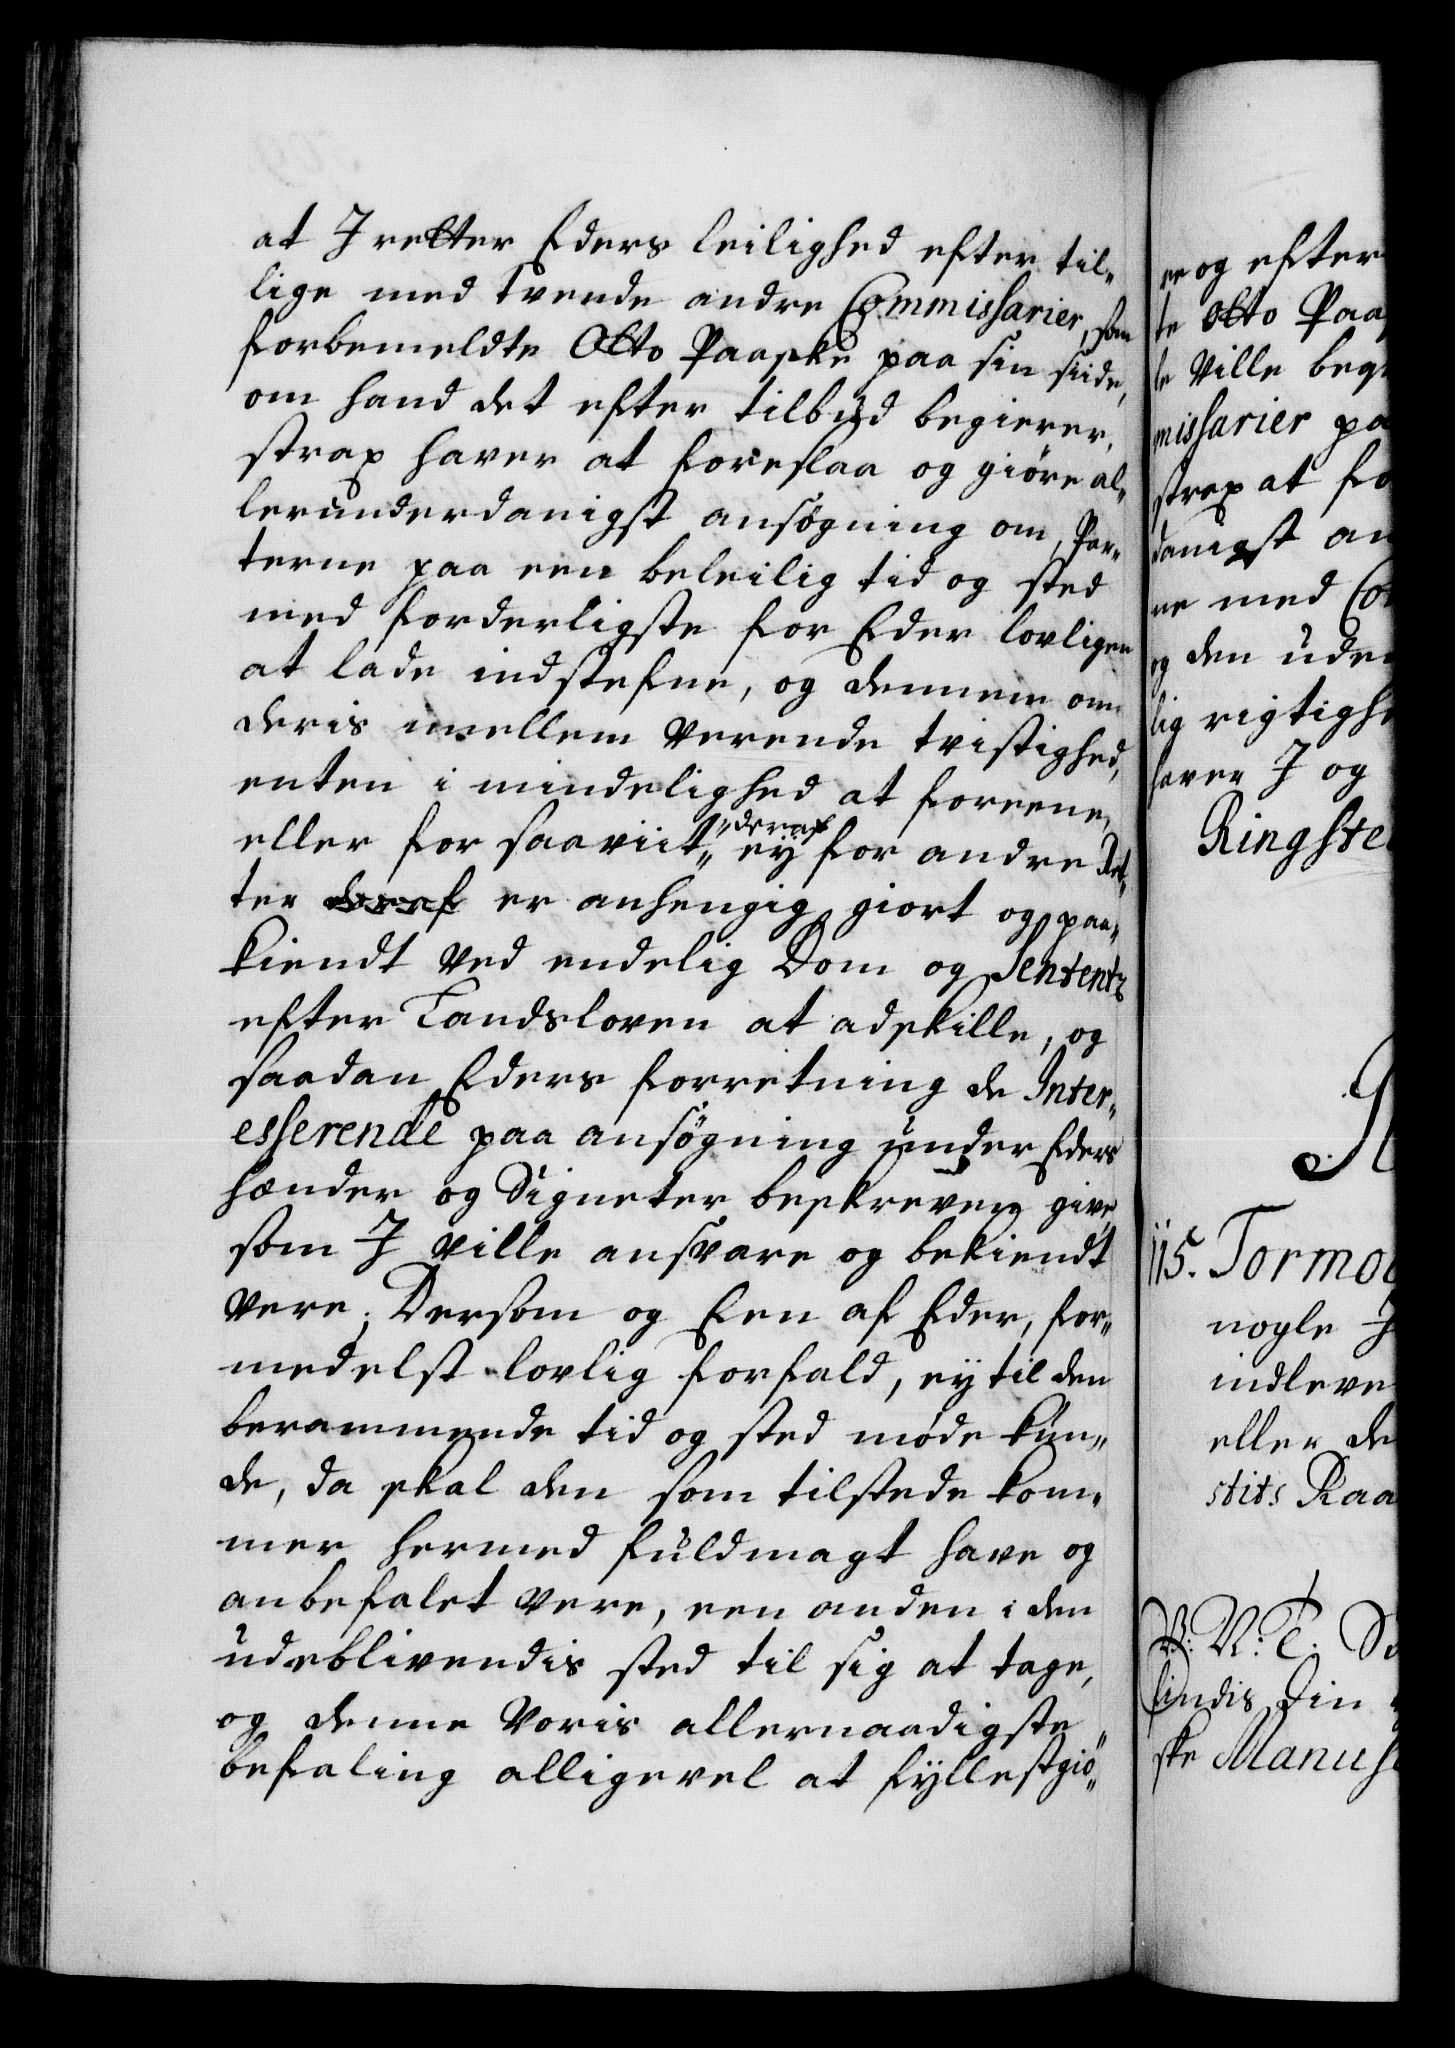 at I retter Eders leilighed efter til„
lige med tvende andre Commissarier, som
forbemeldte Otto Paaske paa sin siide,
om hand det efter tilbud begierer,
strax haver at foreslaa og giöre al„
lerunderdanigst ansögning om, Par„
terne paa een beleilig tid og sted
med forderligste for Eder lovligen
at lade indstefne, og dennem om
deris imellem verende tvistighed,
enten i mindelighed at foreene,
eller for saaviit „deraf ey for andre Ret„
ter deraf er anhengig giort og paa„
kiendt ved endelig Dom og Sententz
efter Landsloven at adskille, og
saadan Eders forretning de Inter„
esserende paa ansögning under Eders
hænder og Signeter beskreven give,
som I ville ansvare og bekiendt
vere. Dersom og Een af Eder, for„
medelst lovlig forfald, ey til den
berammende tid og sted møde kun„
de, da skal den som tilstede kom„
mer hermed fuldmagt have og
anbefalet vere, een anden i den
udeblivendis sted til sig at tage,
og denne Voris allernaadigste
befaling alligevel at fyllestgiö„
re og efter
te Otto Paa
le Ville beg
missarier pa
strax at fo
danigst an
re med Co
og den uden
lig rigtighe
haver I og
Ringste
115. Tormo
nogle I
indleve
eller de
stits Raa
V: N: T. So
lindis Din
ske Manus